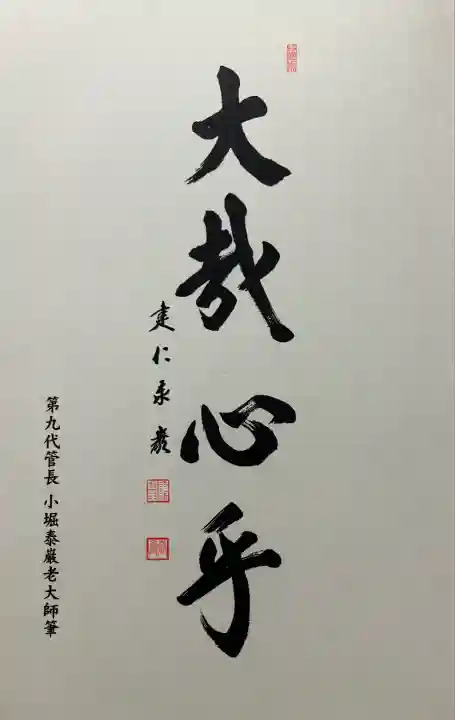 大哉心乎
建仁泰巌
第九代管長 小堀泰巌老大師筆